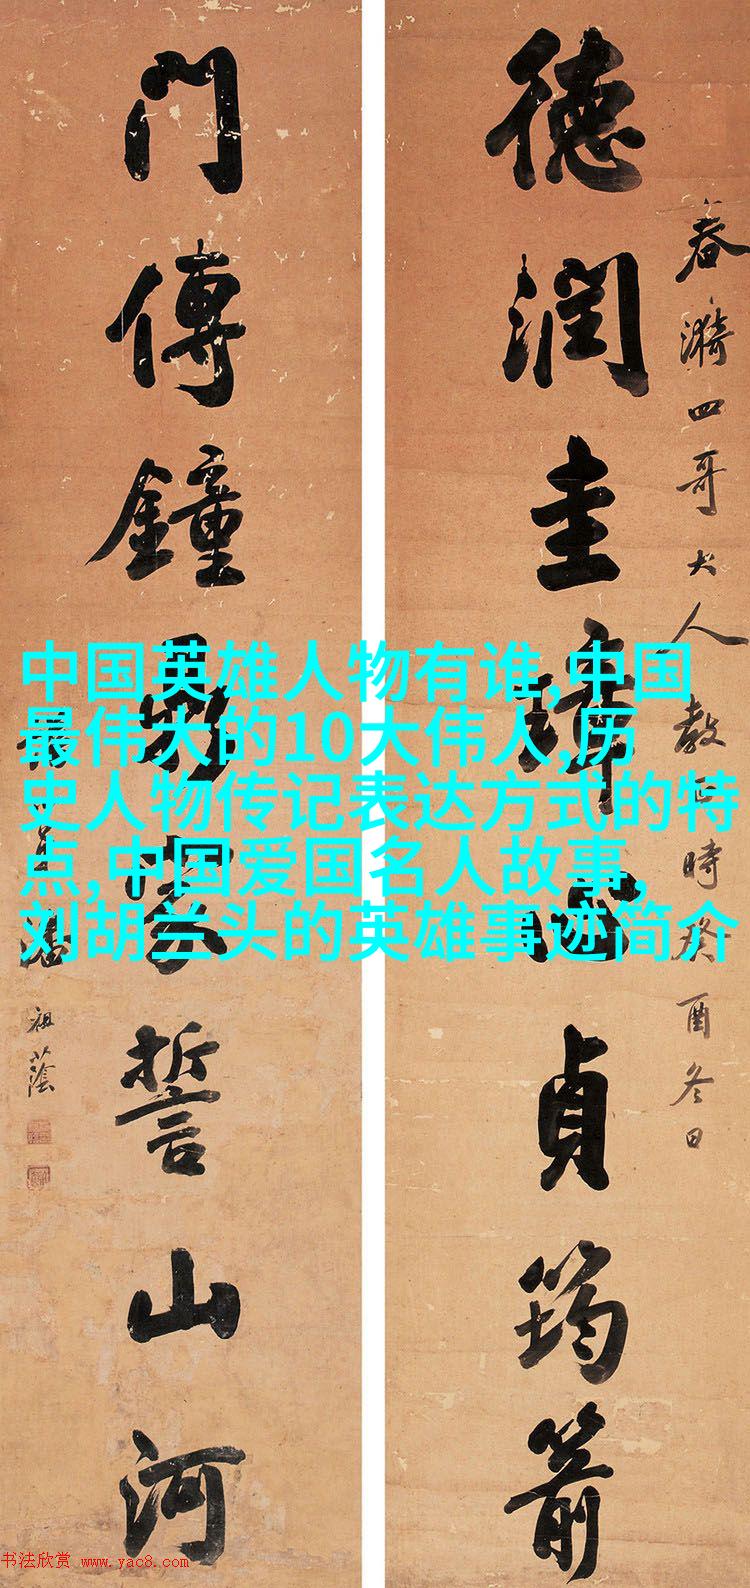 春漪四哥大人教正時癸酉冬日
德潤圭璋心貞筠箭
門傳鐘家誓山河
祖蔭
中国英雄人物有谁,中国
最伟大的10大伟人,历
史人物传记表达方式的特
点,中国爱国名人故事,
刘胡兰头的英雄事迹简介
书法欣赏 www.yac8.com